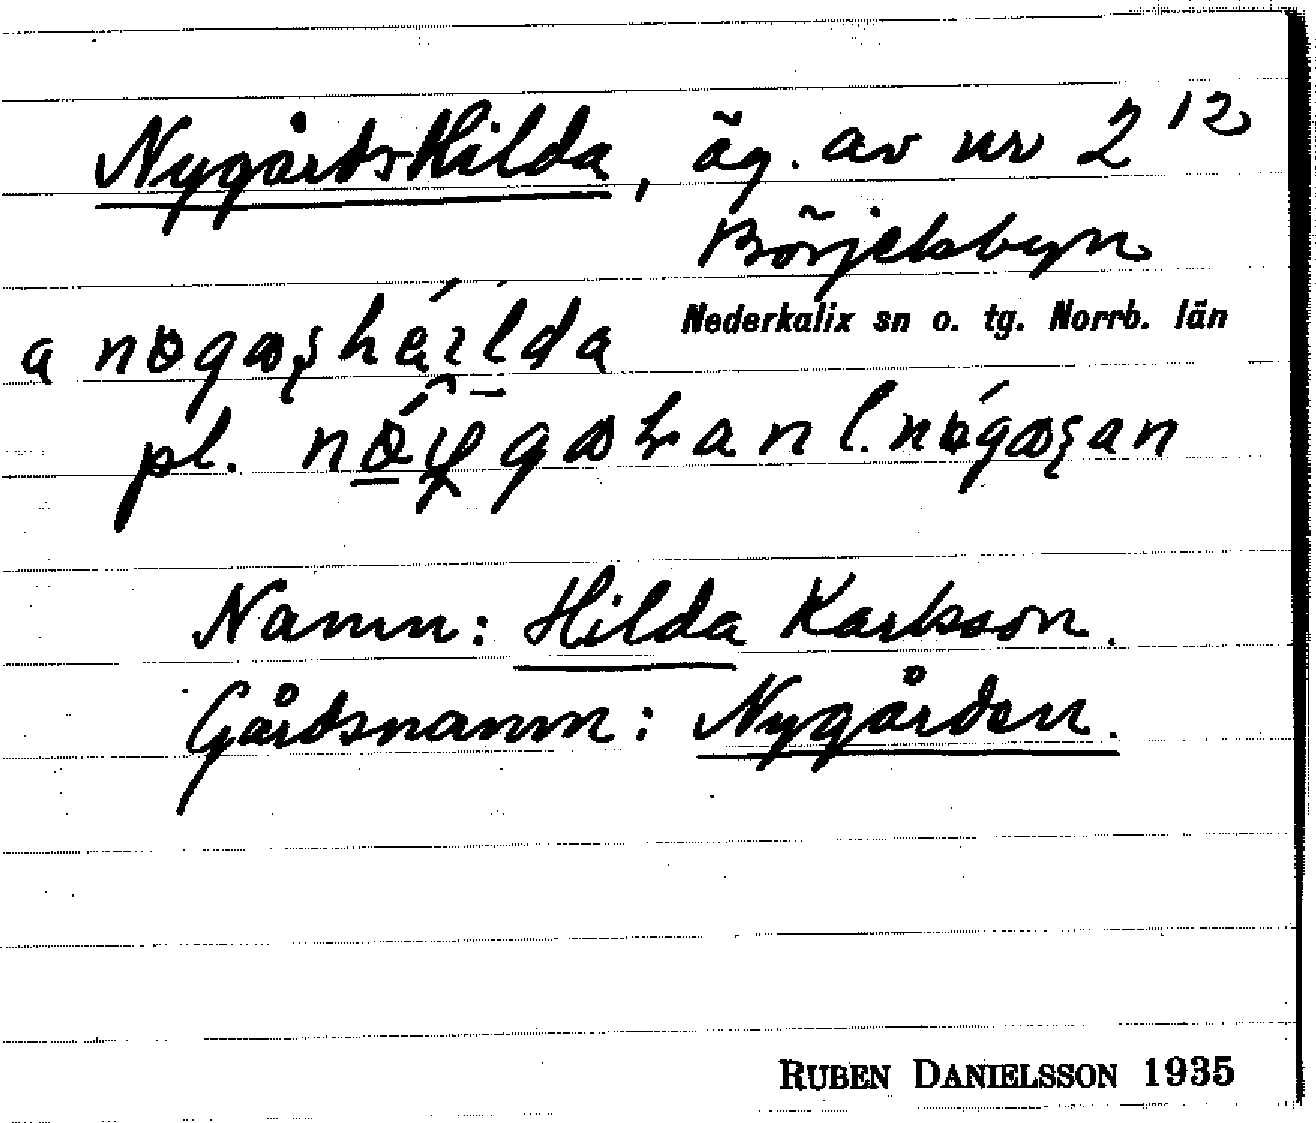 NygårdsHilda, äg. av nr 2 12
Börjelsbyn
Nederkalix sn o. tg. Norrb. län
a
pl. l.
Namn: Hilda Karlsson.
Gårdsnamn: Nygården.
RUBEN DANIELSSON 1935